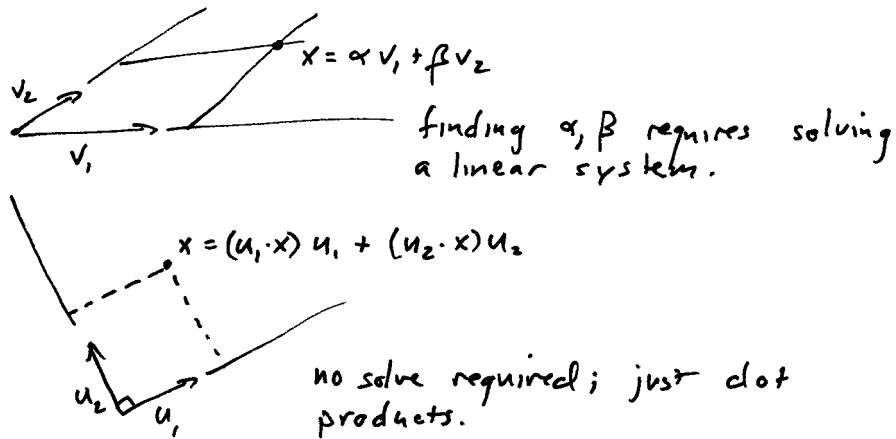 x = α v₁ + β v₂
v₂
v₁
finding α, β requires solving
a linear system.
x = (u₁·x) u₁ + (u₂·x) u₂
u₂
u₁
no solve required; just dot
products.